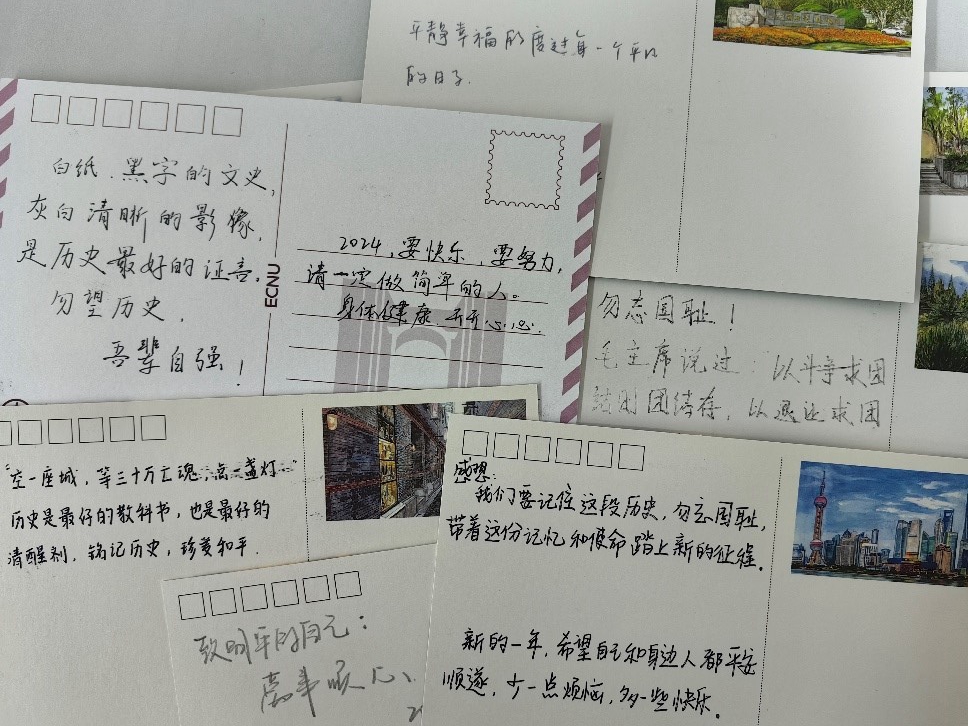 平静幸福的度过每一个平凡
的日子.
白纸.黑字的文史,
灰白清晰的影像,
是历史最好的证言.
勿望历史.
吾辈自强!
ECNU
2024,要快乐,要努力,
请一定做简单的人。
身体健康,开开心心.
勿忘国耻!
毛主席说过:以斗争求团
结则团结存,以退让求团
"空一座城,等三十万亡魂,点一盏灯..."
历史是最好的教科书,也是最好的
清醒剂.铭记历史,珍爱和平.
感想:
我们要记住这段历史,勿忘国耻,
带着这份记忆和使命踏上新的征程.
新的一年,希望自己和身边人都平安
顺遂,少一点烦恼,多一些快乐.
致明年的自己:
万事顺心、